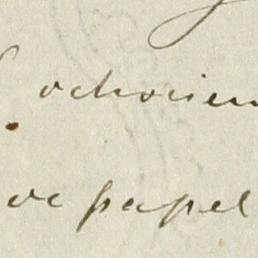 ochocien
de papel